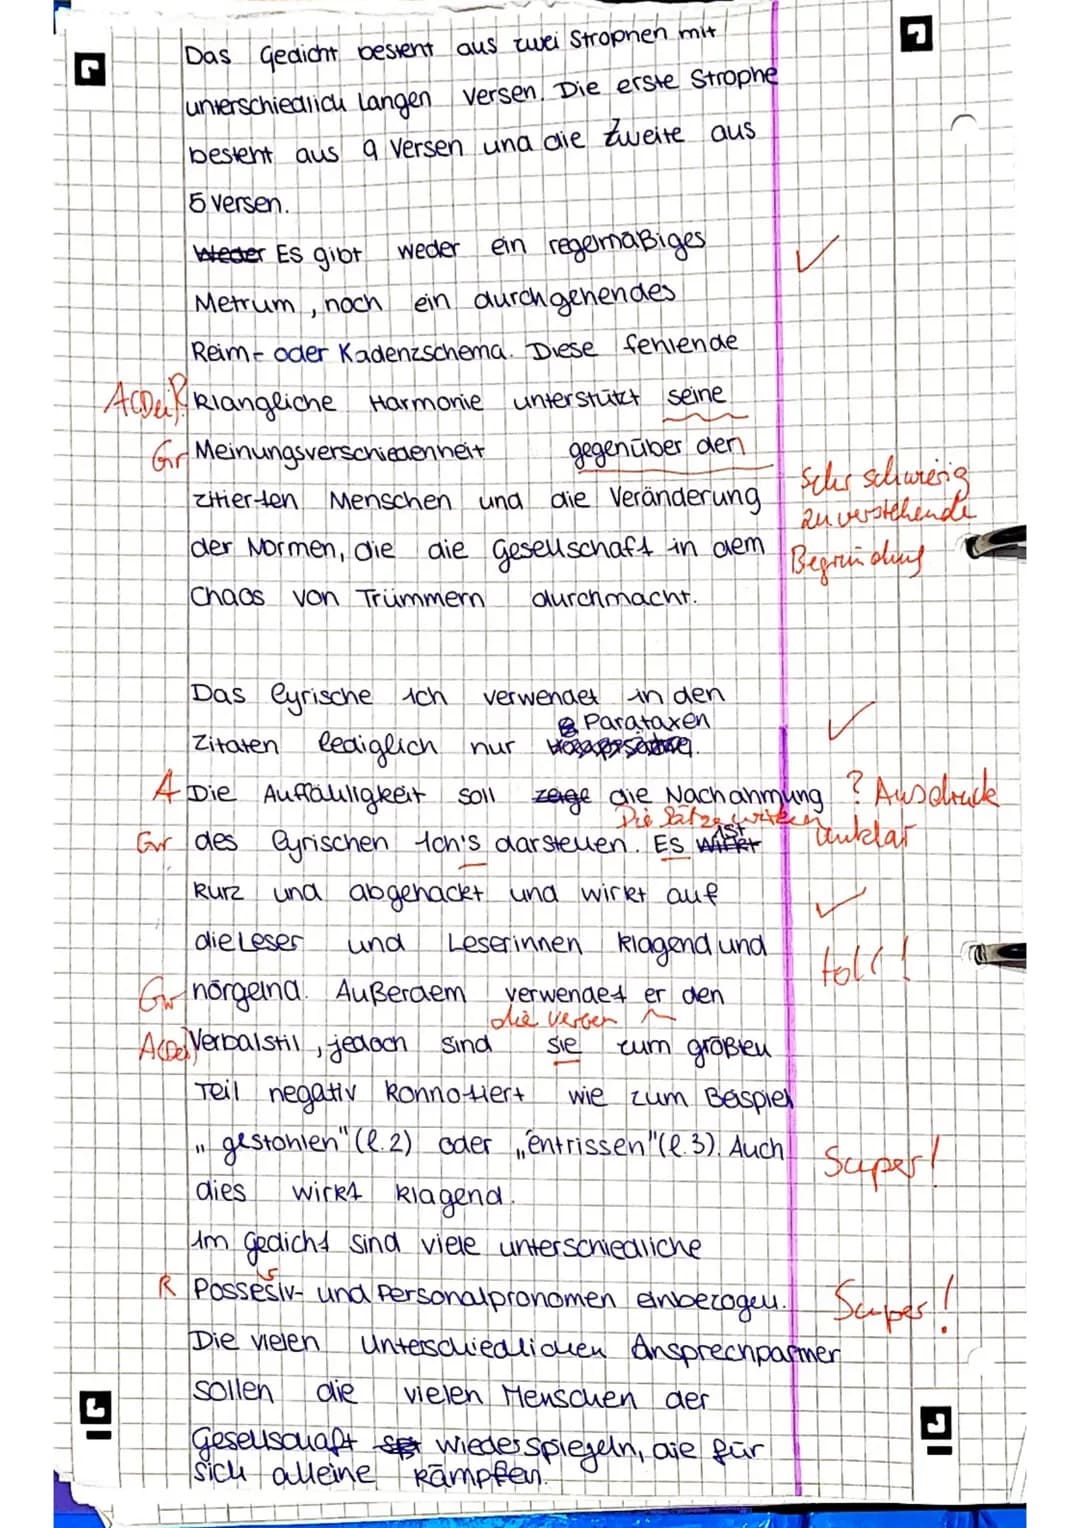 Das Gedicht besteht aus zwei Strophen mit
unterschiedlich langen Versen. Die erste Strophe
besteht aus 9 Versen und die zweite aus
5 Versen.
Weder Es gibt weder ein regemäßiges
Metrum, noch ein durchgehendes
Reim- oder Kadenzschema. Diese fehlende
A(De)? klangliche Harmonie unterstützt seine
Gr Meinungsverschiedenheit gegenüber den
zitierten Menschen und die Veränderung
Sehr schwierig
zu verstehende
der Normen, die die Gesellschaft in dem
Begründung
Chaos von Trümmern durchmacht.
Das lyrische Ich verwendet in den
Parataxen
Zitaten lediglich nur
A Die Auffälligkeit soll zeige die Nachahmung ? Ausdruck
Die Sätze wirken unklar
Gr des lyrischen Ich's darstellen. Es wirkt ist
kurz und abgehackt und wirkt auf
die Leser und Leserinnen klagend und
toll!
Gr nörgelnd. Außerdem verwendet er den
die Verben
A(De) Verbalstil, jedoch sind sie zum größten
Teil negativ konnotiert wie zum Beispiel
„gestohlen" (l.2) oder „entrissen" (l.3). Auch
Super!
dies wirkt klagend.
Im Gedicht sind viele unterschiedliche
s
R Possesiv- und Personalpronomen einbezogen.
Super!
Die vielen unterschiedlichen Ansprechpartner
sollen die vielen Menschen der
Gesellschaft wiederspiegeln, die für
sich alleine kämpfen.